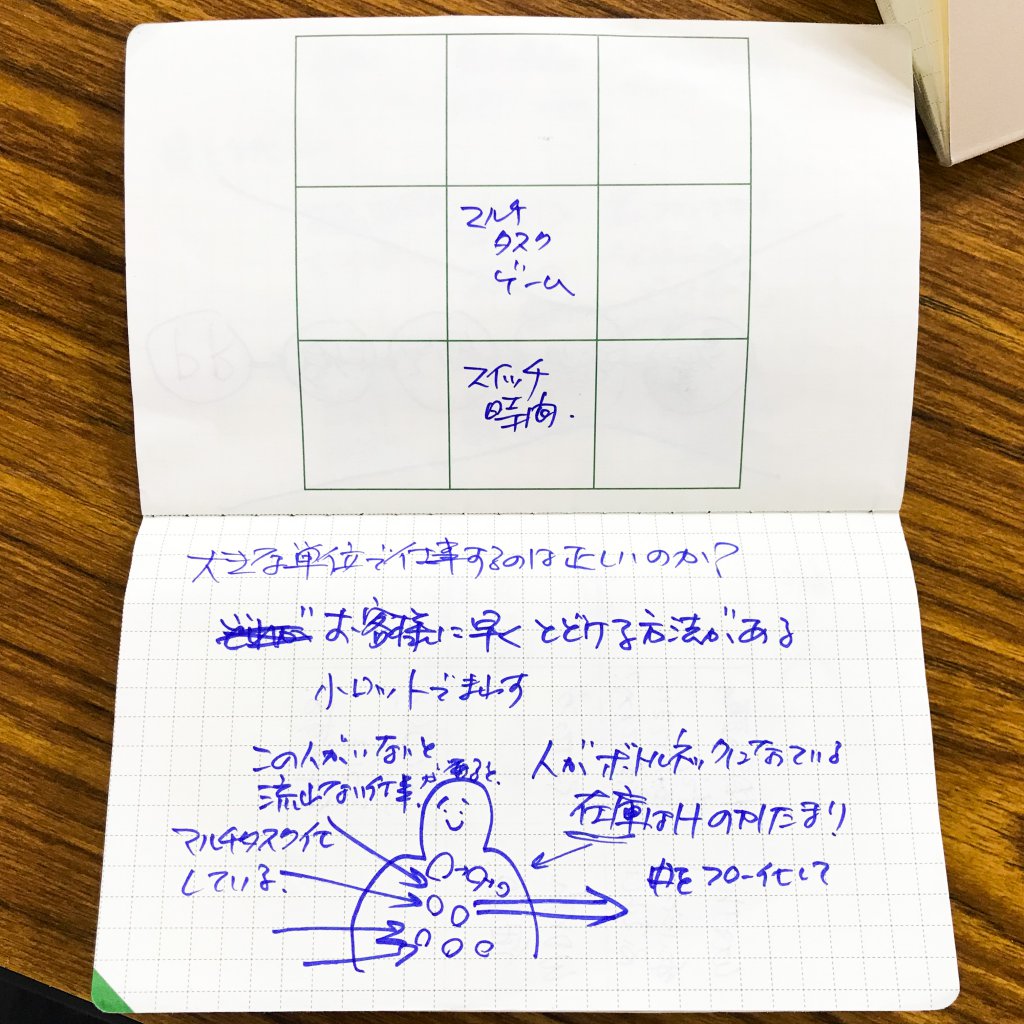 マルチ
タスク
ゲーム
スイッチ
時間.
大きな単位で仕事するのは正しいのか?
お客様に早くとどける方法がある
小ロットでまわす
この人がいないと
流れない仕事があると、
マルチタスク化
している.
人がボトルネックになっている
在庫はHのかたまり
をフロー化して